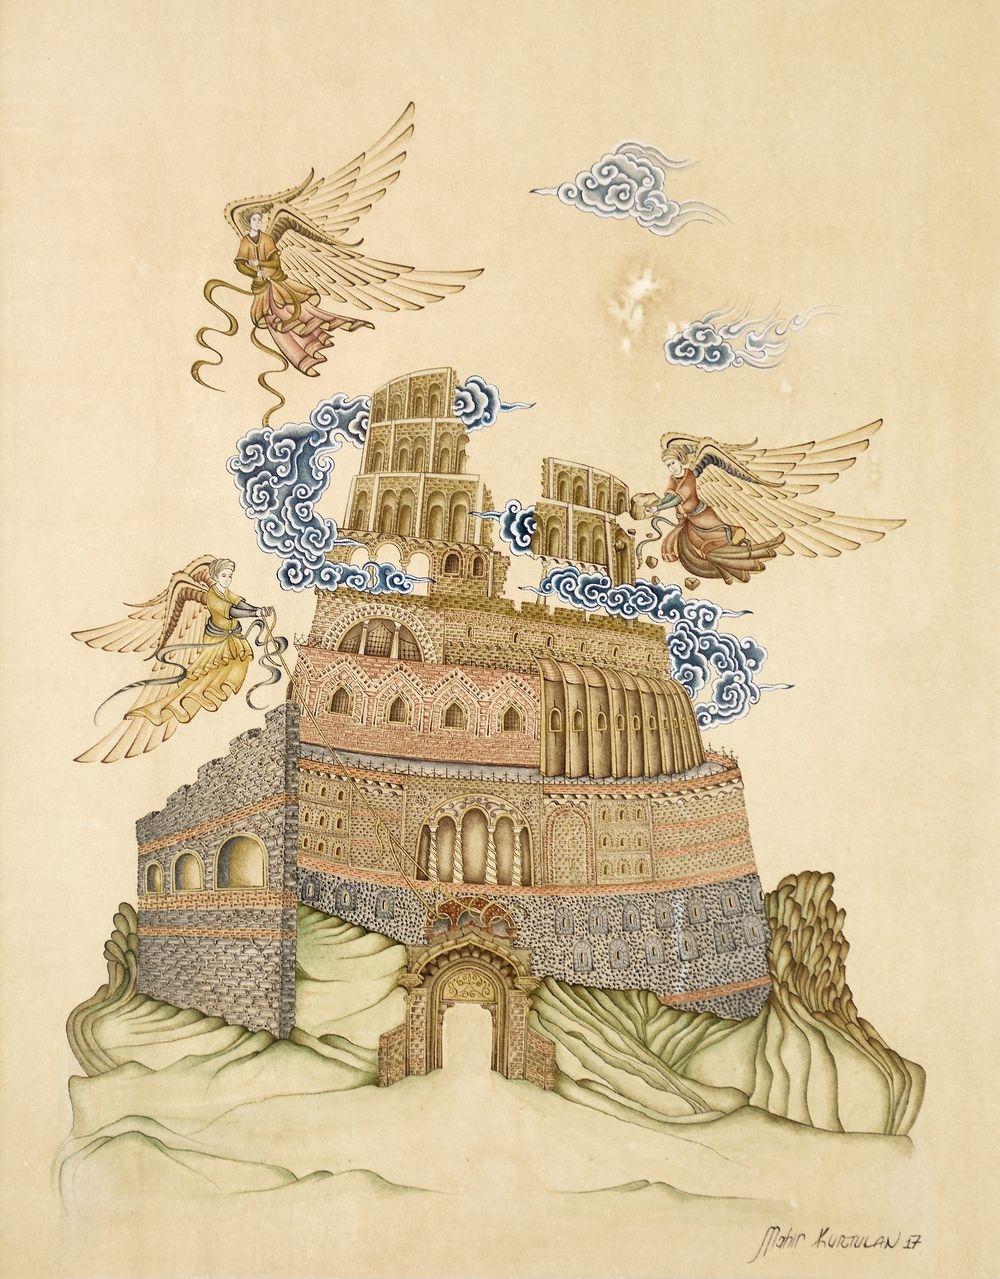 Mahir KURTULAN 17